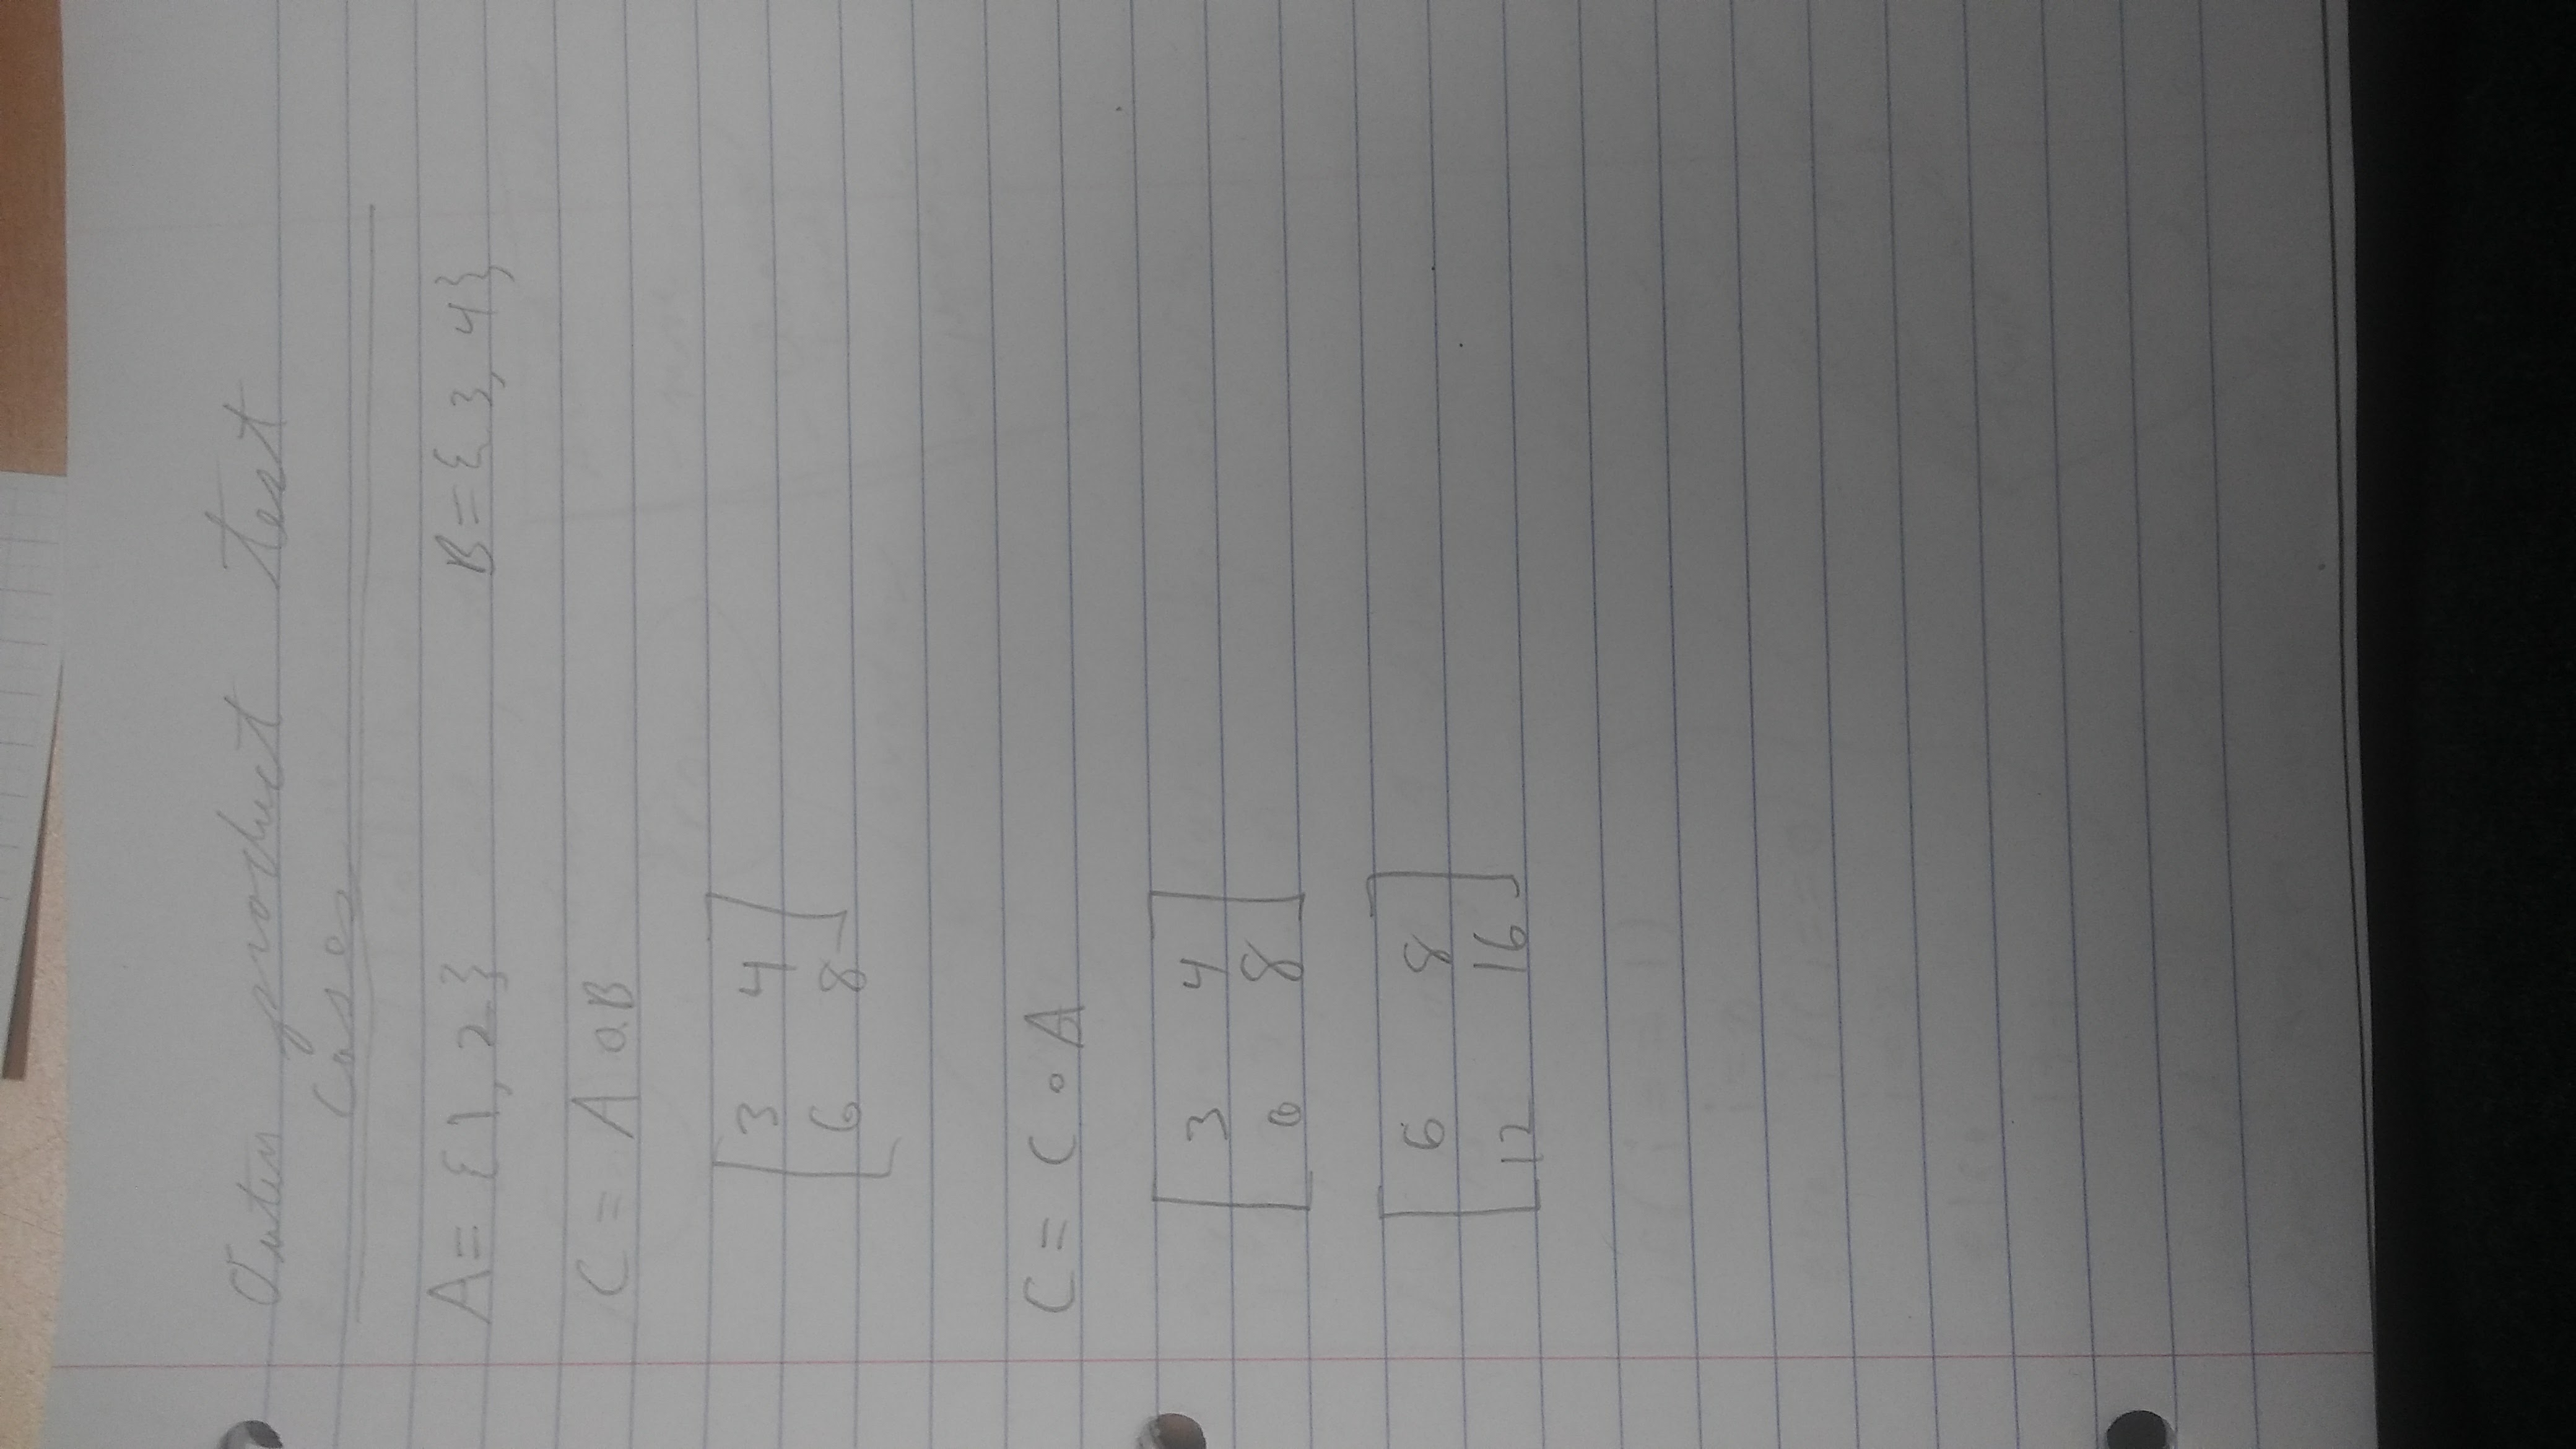 Outer product test
cases
A = {1, 2} B = {3, 4}
C = A o B
3 4
6 8
C = C ∘ A
3 4
6 8
6 8
12 16